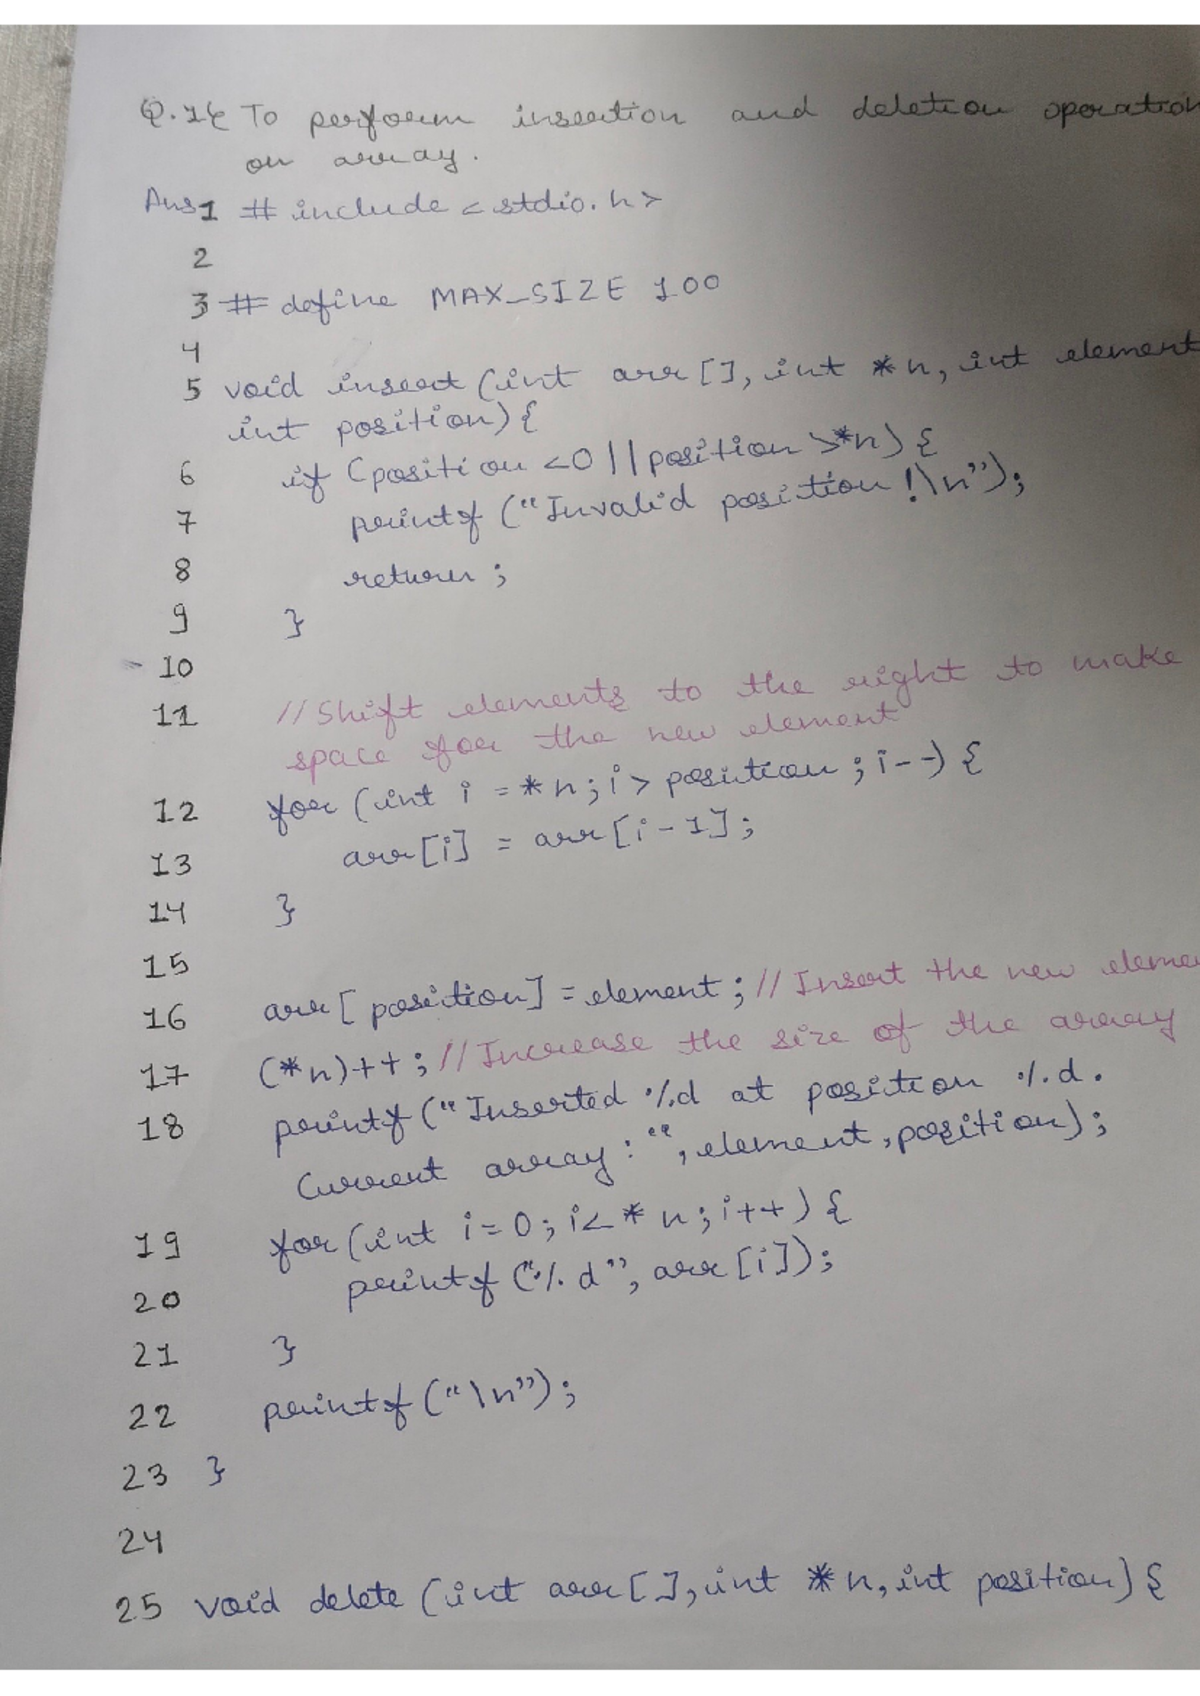 Q.1 To perform insertion and deletion operation
on array.
Ans 1 #include <stdio.h>
2
3 #define MAX_SIZE 100
4
5 void insert (int arr[], int *n, int element
int position) {
6 if (position <0 || position >*n) {
7 printf ("Invalid position !\n");
8 return ;
9 }
10
11 // Shift elements to the right to make
space for the new element
12 for (int i = *n; i > position ; i--) {
13 arr[i] = arr[i-1];
14 }
15
16 arr[position] = element; // Insert the new eleme
17 (*n)++; // Increase the size of the array
18 printf ("Inserted %d at position %d.
Current array : ", element, position);
19 for (int i=0; i< *n; i++) {
20 printf ("%d", arr[i]);
21 }
22 printf ("\n");
23 }
24
25 void delete (int arr[], int *n, int position) {